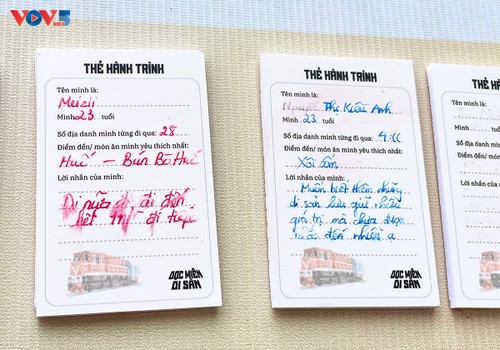 VOV5
THẺ HÀNH TRÌNH
Tên mình là:
Meizii
Mình 23 tuổi
Số địa danh mình từng đi qua: 28
Điểm đến/ món ăn mình yêu thích nhất:
Huế - Bún Bò Huế
Lời nhắn của mình:
Đi nữa đi, đi đến
hết
DỌC MIỀN
DI SẢN
THẺ HÀNH TRÌNH
Tên mình là:
Thị Kiều Anh
Mình 23 tuổi
Số địa danh mình từng đi qua:
Điểm đến/ món ăn mình yêu thích nhất:
Lời nhắn của mình:
Muốn biết thêm những
di sản lưu giữ nhiều
giá trị mà chưa được
nhắc đến nhiều ạ
DỌC MIỀN
DI SẢN
Tên mình là:
Mình
Số địa danh
Điểm đến/
Lời nhắn của